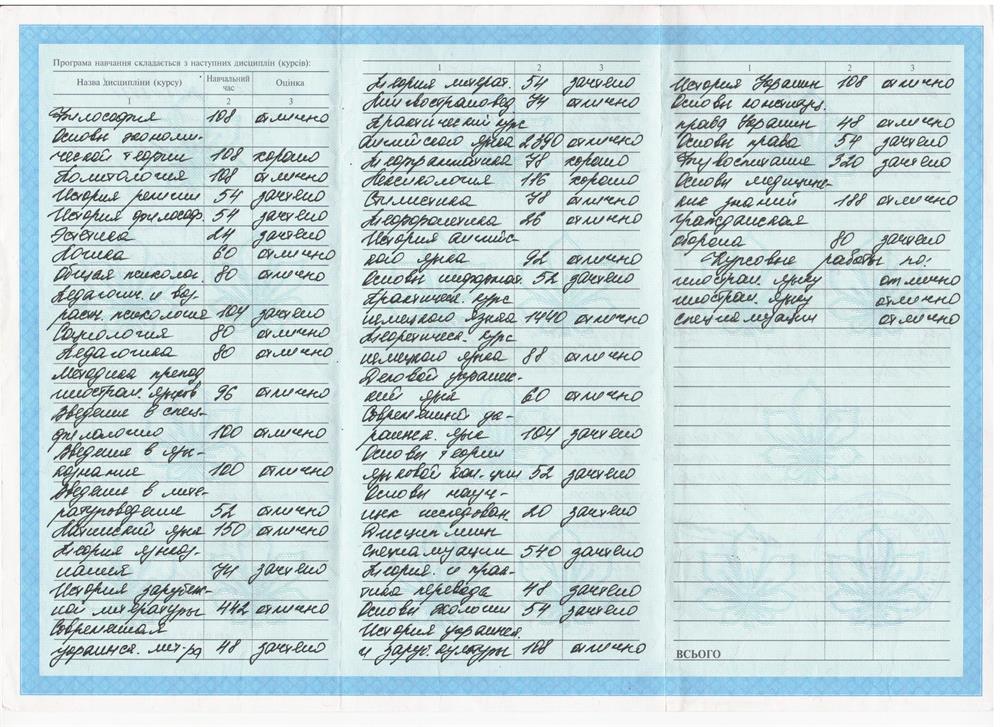 Програма навчання складається з наступних дисциплін (курсів):
Назва дисципліни (курсу) Навчальний час Оцінка
1 2 3
Философия 108 отлично
Основы экономи-
ческой теории 108 хорошо
Политология 108 отлично
История религии 54 зачтено
История философ. 54 зачтено
Эстетика 24 зачтено
Логика 60 отлично
Общая психолог. 80 отлично
Педагогич. и воз-
растн. психология 104 зачтено
Социология 80 отлично
Педагогика 80 отлично
Методика препод.
иностран. языков 96 отлично
Введение в спец-
филологию 100 отлично
Введение в язы-
кознание 100 отлично
Введение в лите-
ратуроведение 52 отлично
Латинский язык 150 отлично
Теория языкоз-
нания 74 зачтено
История зарубеж-
ной литературы 442 отлично
Современная
украинск. лит-ра 48 зачтено
1 2 3
Теория литерат. 54 зачтено
Лингвострановед. 74 отлично
Практический курс
английского языка 2390 отлично
Теорграмматика 78 хорошо
Лексикология 116 хорошо
Стилистика 78 отлично
Теорфонетика 26 отлично
История английс-
кого языка 92 отлично
Основы информат. 52 зачтено
Практическ. курс
немецкого языка 1440 отлично
Теоретическ. курс
немецкого языка 88 отлично
Деловой украинс-
кий язык 60 отлично
Современный ук-
раинск. язык 104 зачтено
Основы теории
языковой ком-ции 52 зачтено
Основы науч-
ных исследован. 20 зачтено
Дисциплины
специализации 540 зачтено
Теория и прак-
тика перевода 48 зачтено
Основы экологии 54 зачтено
История украинск.
и заруб. культуры 108 отлично
1 2 3
История Украины 108 отлично
Основы конституц.
права Украины 48 отлично
Основы права 54 зачтено
Физвоспитание 320 зачтено
Основы медицинс-
ких знаний 188 отлично
Гражданская
оборона 80 зачтено
Курсовые работы по:
иностран. языку отлично
иностран. языку отлично
специализации отлично
ВСЬОГО